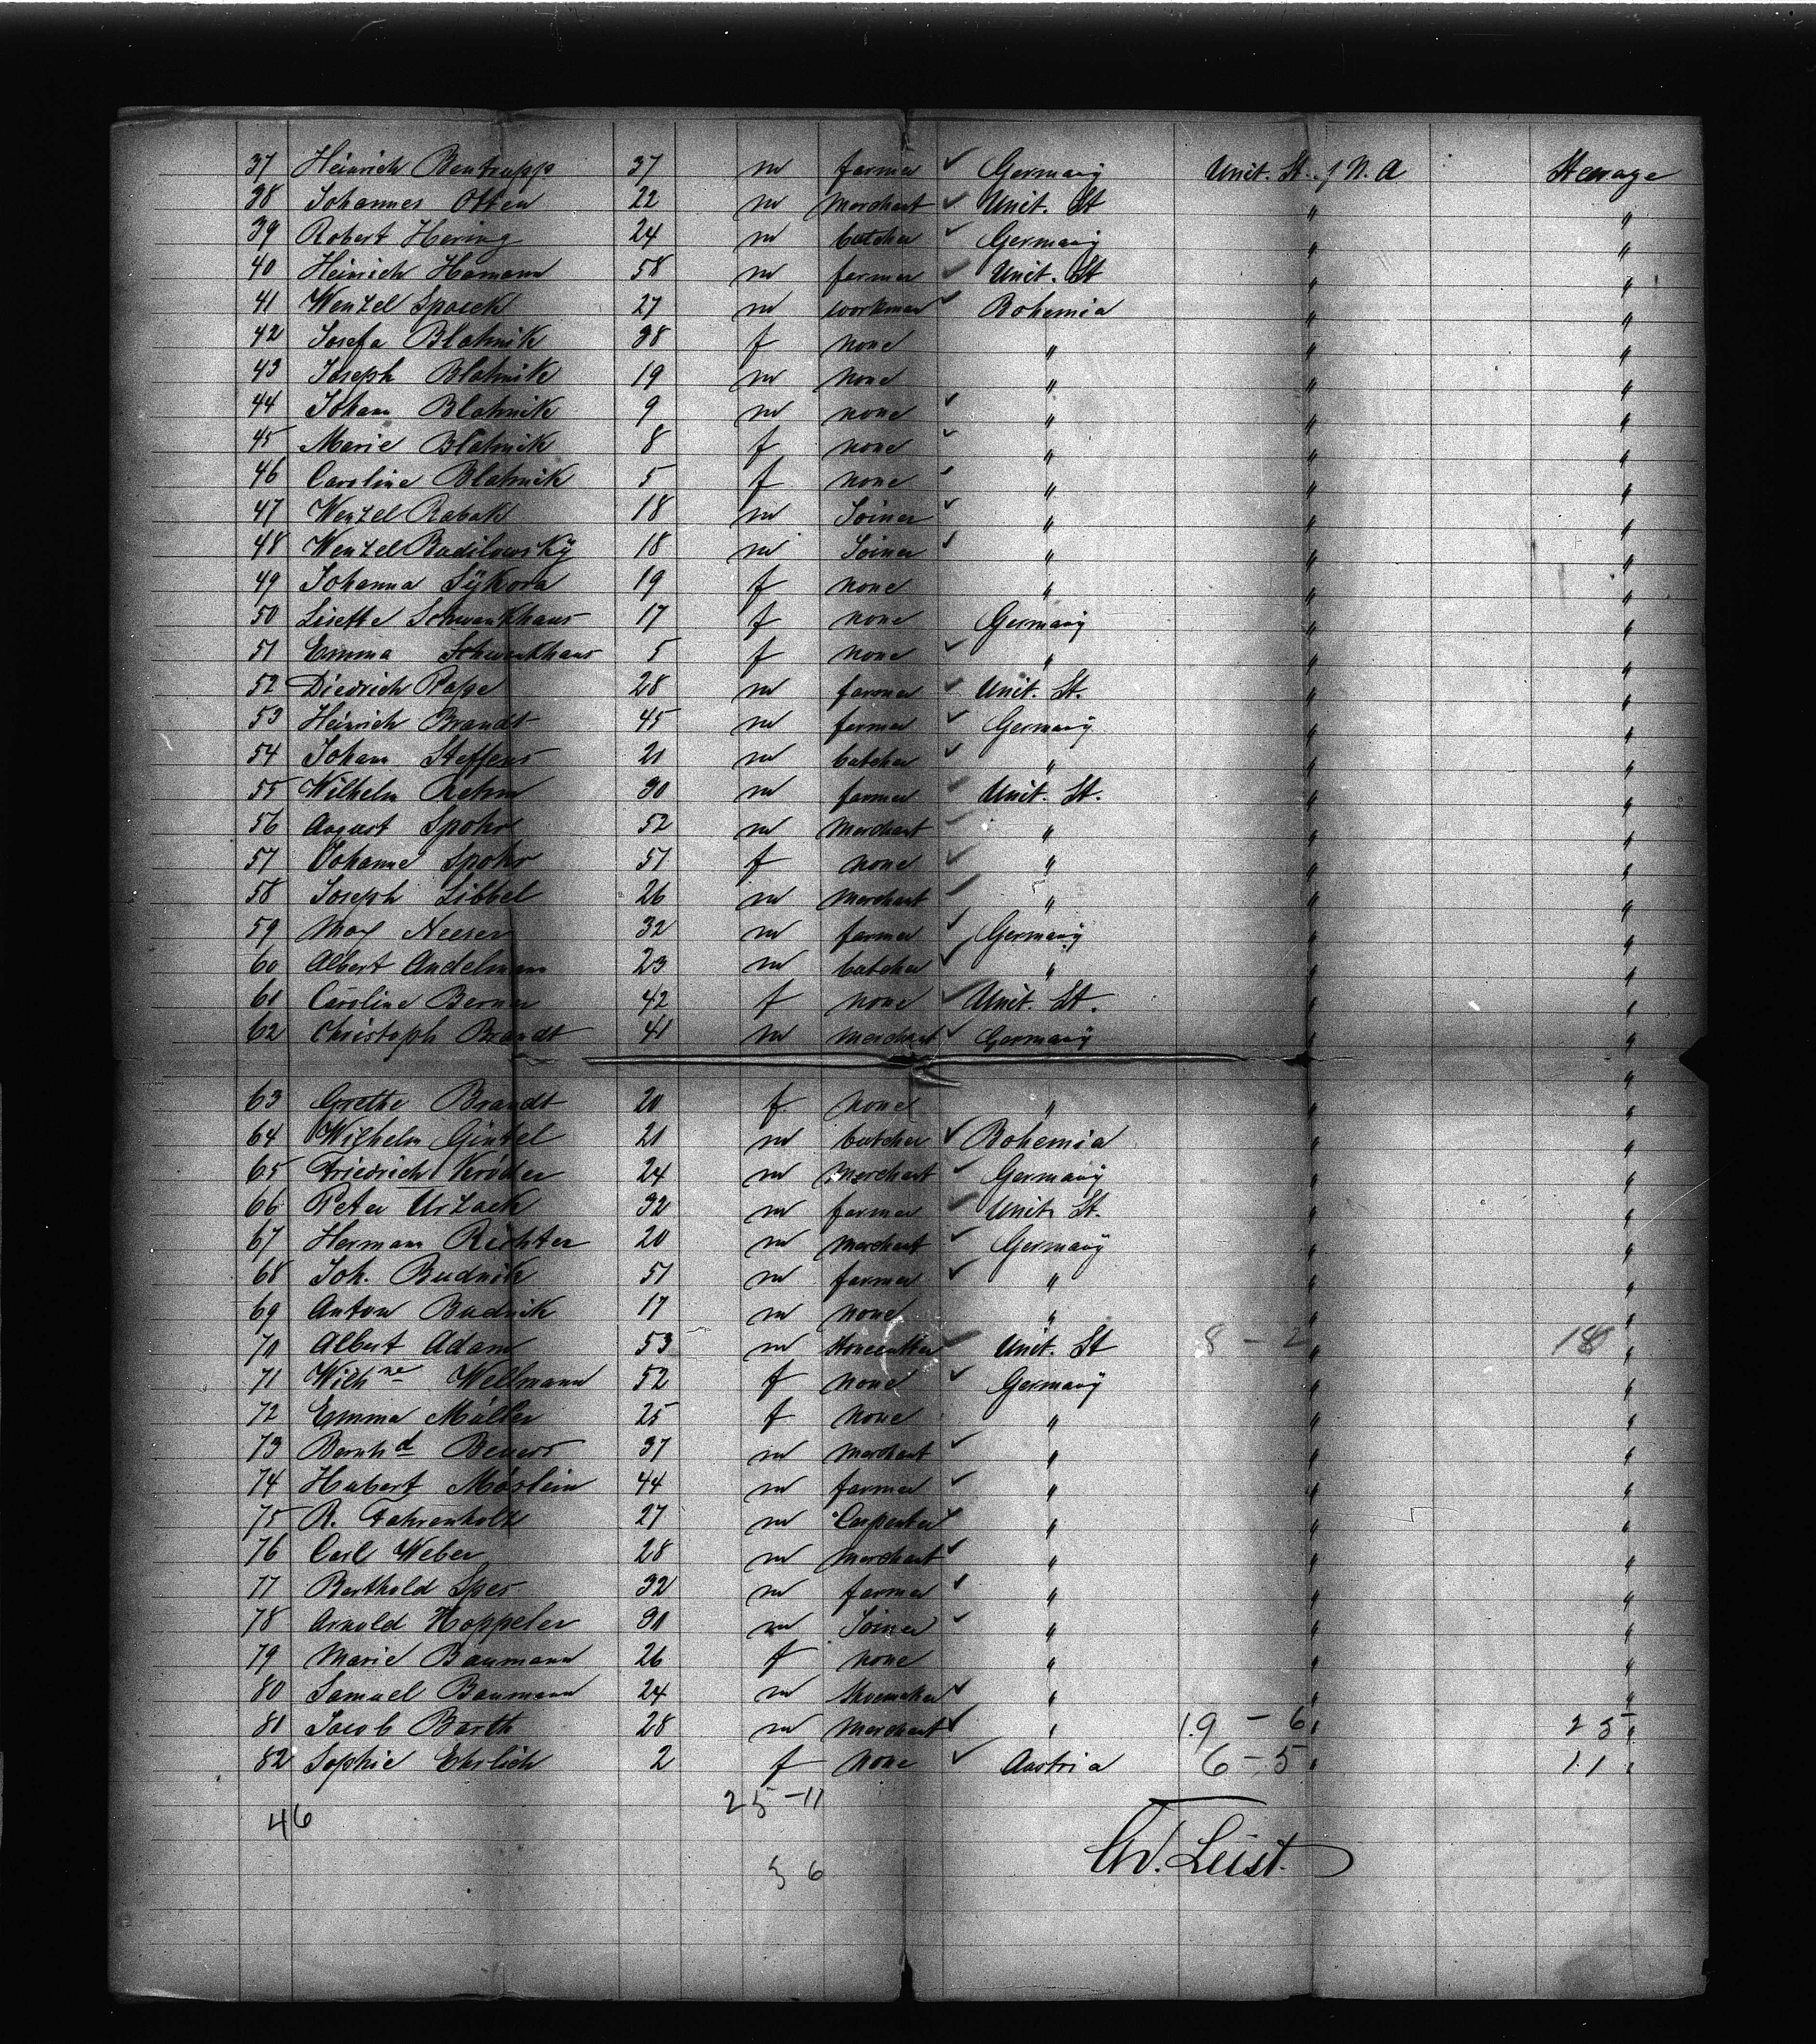 37 Heinrich Bentrupp 37 m farmer ✓ Germany Unit. St. of N. A Steerage
38 Johannes Otten 22 m Merchant ✓ Unit. St " "
39 Robert Hering 24 m butcher ✓ Germany " "
40 Heinrich Hamann 58 m farmer ✓ Unit. St " "
41 Wenzel Spacek 27 m workman ✓ Bohemia " "
42 Josefa Blahnik 38 f none " " "
43 Joseph Blahnik 19 m none " " "
44 Johann Blahnik 9 m none ✓ " " "
45 Marie Blahnik 8 f none ✓ " " "
46 Caroline Blahnik 5 f none ✓ " " "
47 Wenzel Rabak 18 m Joiner ✓ " " "
48 Wenzel Budilowsky 18 m Joiner ✓ " " "
49 Johanna Sÿkora 19 f none " " "
50 Lisette Schwenkhaus 17 f none Germany " "
51 Emma Schwenkhaus 5 f none ✓ " " "
52 Diedrich Pape 28 m farmer ✓ Unit. St. " "
53 Heinrich Brandt 45 m farmer ✓ Germany " "
54 Johann Steffens 21 m butcher ✓ " " "
55 Wilhelm Rehm 30 m farmer ✓ Unit. St. " "
56 August Spohr 52 m Merchant ✓ " " "
57 Johanne Spohr 51 f none ✓ " " "
58 Joseph Libbel 26 m Merchant ✓ " " "
59 Max Neeser 32 m farmer ✓ Germany " "
60 Albert Andelmann 23 m butcher ✓ " " "
61 Caroline Berner 42 f none ✓ Unit. St. " "
62 Christoph Brandt 41 m Merchant ✓ Germany " "
63 Grethe Brandt 20 f none " " "
64 Wilhelm Gintel 21 m butcher ✓ Bohemia " "
65 Friedrich Kröder 24 m Merchant ✓ Germany " "
66 Peter Urzack 32 m farmer ✓ Unit. St. " "
67 Hermann Richter 20 m Merchant ✓ Germany " "
68 Joh. Budnik 51 m farmer ✓ " " "
69 Anton Budnik 17 m none " " "
70 Albert Adam 53 m Stonecutter ✓ Unit. St 8 - 2 " "
71 Wilh ne Wellmann 52 f none ✓ Germany " "
72 Emma Müller 25 f none " " "
73 Bernh d Beuers 37 m Merchant ✓ " " "
74 Hubert Möslein 44 m farmer ✓ " " "
75 R. Fahrenholz 27 m Carpenter ✓ " " "
76 Carl Weber 28 m Merchant ✓ " " "
77 Berthold Spes 32 m farmer ✓ " " "
78 Arnold Hoppeler 31 m Joiner ✓ " " "
79 Marie Baumann 26 f none " " "
80 Samuel Baumann 24 m Shoemaker ✓ " " "
81 Jacob Barth 28 m Merchant ✓ " 19 - 6 " 25 "
82 Sophie Ehrlich 2 f none ✓ Austria 6 - 5 " 11 "
46 25-11
36
Ch. Leist.